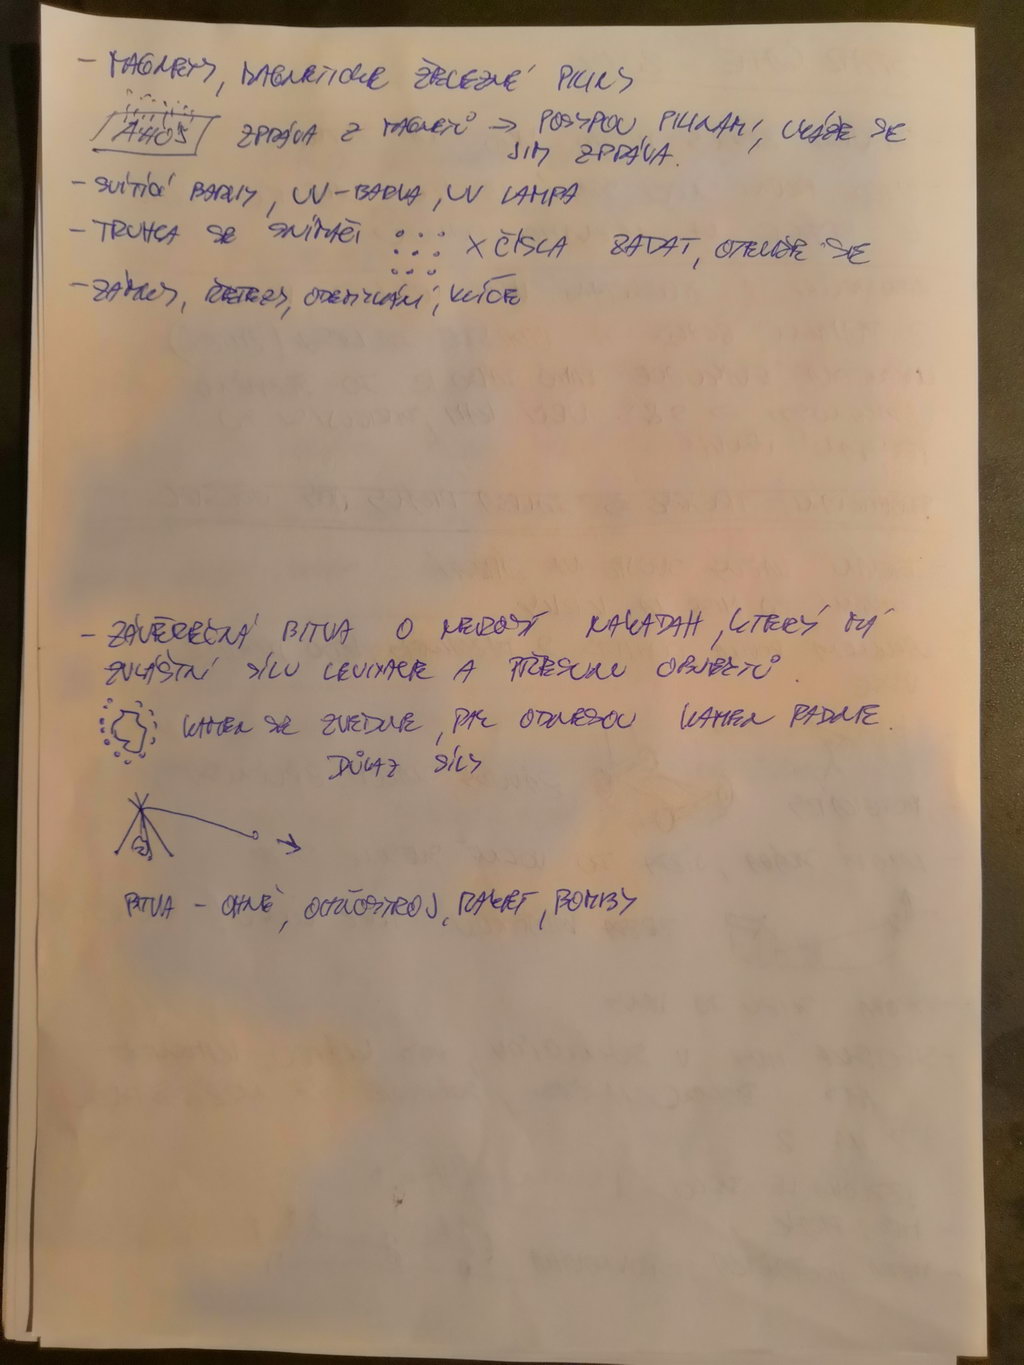 - MAGNETY, MAGNETICKÉ ŽELEZNÉ PILINY
AHOJ ZPRÁVA Z MAGNETŮ → POSYPOU PILINAMI, UKÁŽE SE
JIM ZPRÁVA.
- SVÍTÍCÍ BARVY, UV-BARVA, UV LAMPA
- TRUHLA SE SNÍMAČI X ČÍSLA ZADAT, OTEVŘE SE
- ZÁMKY, ŘETĚZY, ODEMYKÁNÍ, KLÍČE
- ZÁVĚREČNÁ BITVA O NEROST, KTERÝ MÁ
ZVLÁŠTNÍ SÍLU LEVITACE A PŘESUNU OBJEKTŮ.
KAMEN SE ZVEDNE, PAK ODNESOU KAMEN PADNE.
DŮKAZ SÍLY
BITVA - OHNĚ, OHŇOSTROJ, RAKET, BOMBY